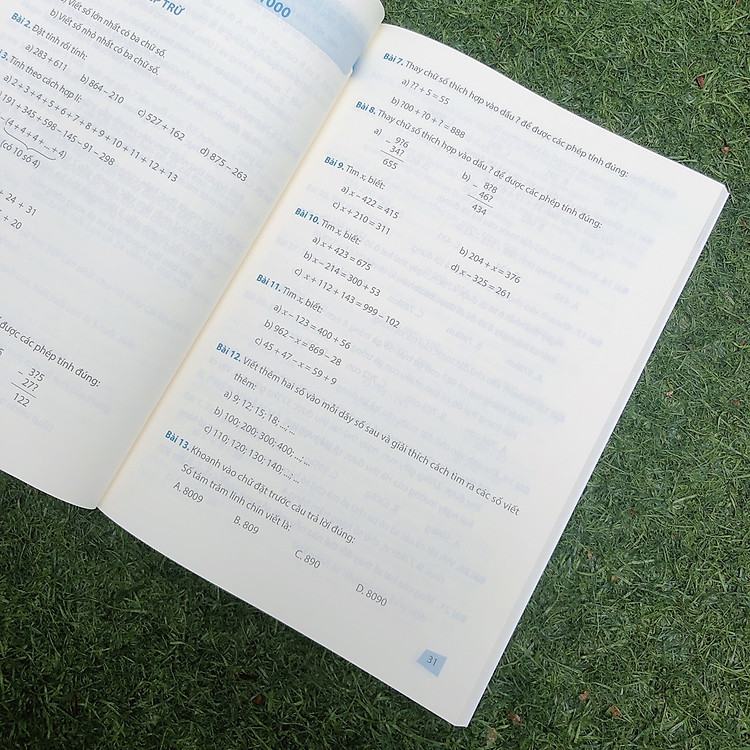 1000
P TRỪ
a) Viết số lớn nhất có ba chữ số.
b) Viết số nhỏ nhất có ba chữ số.
Bài 2. Đặt tính rồi tính:
a) 283 + 611 b) 864 – 210 c) 527 + 162 d) 875 – 263
3. Tính theo cách hợp lí:
a) 2 + 3 + 4 + 5 + 6 + 7 + 8 + 9 + 10 + 11 + 12 + 13
) 191 + 345 + 598 – 145 – 91 – 298
– (4 + 4 + 4 + ... + 4)
(có 10 số 4)
+ 24 + 31
x + 20
được các phép tính đúng:
– 3?5
2??
122
Bài 7. Thay chữ số thích hợp vào dấu ? để được các phép tính đúng:
a) ?? + 5 = 55
b) ?00 + ?0 + ? = 888
Bài 8. Thay chữ số thích hợp vào dấu ? để được các phép tính đúng:
a) – 9?6 b) – 8?8
34? 46?
655 434
Bài 9. Tìm x, biết:
a) x – 422 = 415 b) 204 + x = 376
c) x + 210 = 311 d) x – 325 = 261
Bài 10. Tìm x, biết:
a) x + 423 = 675
b) x – 214 = 300 + 53
c) x + 112 + 143 = 999 – 102
Bài 11. Tìm x, biết:
a) x – 123 = 400 + 56
b) 962 – x = 869 – 28
c) 45 + 47 – x = 59 + 9
Bài 12. Viết thêm hai số vào mỗi dãy số sau và giải thích cách tìm ra các số viết
thêm:
a) 9; 12; 15; 18; ...; ...
b) 100; 200; 300; 400; ...; ...
c) 110; 120; 130; 140; ...; ...
Bài 13. Khoanh vào chữ đặt trước câu trả lời đúng:
Số tám trăm linh chín viết là:
A. 8009 B. 809 C. 890 D. 8090
31